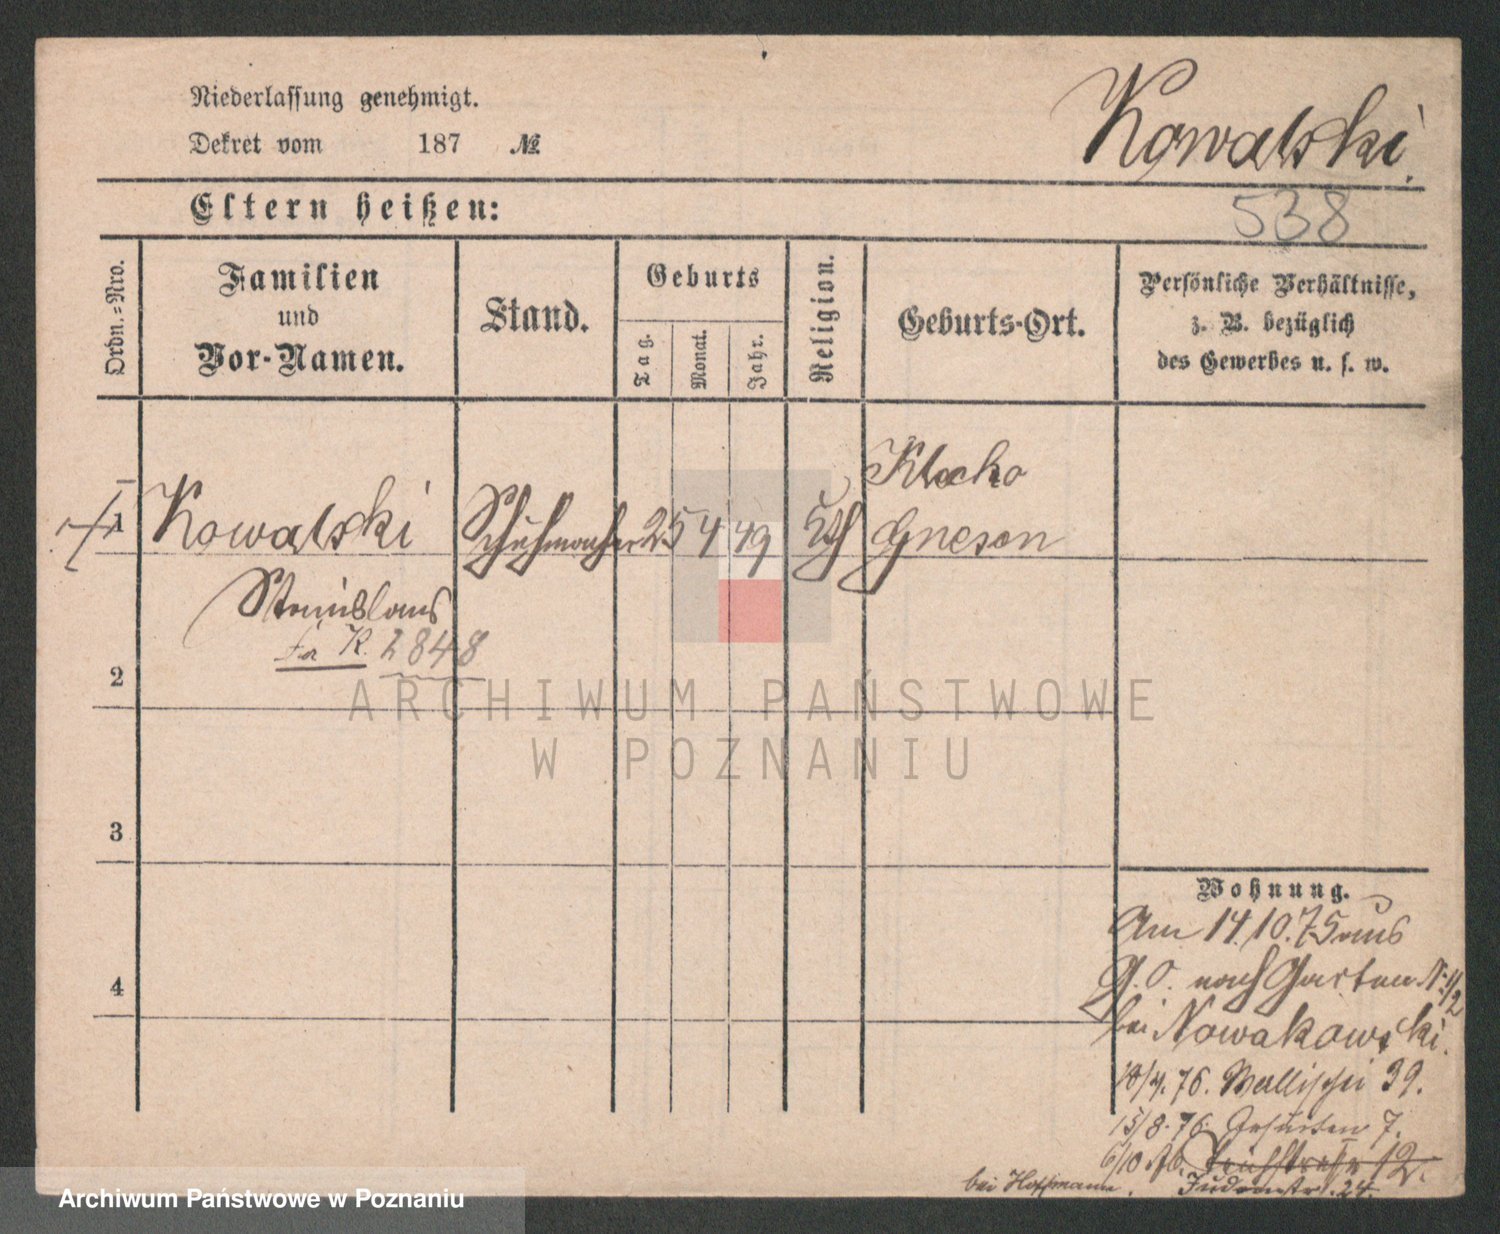 Niederlassung genehmigt.
Dekret vom 187 №
Kowalski.
Eltern heißen:
538
Ordn.=Nro.
Familien
und
Vor-Namen.
Stand.
Geburts
Tag.
Monat.
Jahr.
Religion.
Geburts-Ort.
Persönliche Verhältnisse,
z. B. bezüglich
des Gewerbes u. s. w.
Klecko
1 Kowalski Schuhmacher 25 4 49 kth Gnesen
Stanislaus
K. 2848
2
ARCHIWUM PAŃSTWOWE
W POZNANIU
3
Wohnung.
Am 14.10.75 aus
G.O. nach Garten N. 1/2
4
bei Nowakowski.
18/4.76. Wallischei 39.
15/8.76. Jesuiten 7.
6/10 76. Teichstraße 12.
bei Hoffmann. Judenstr. 24.
Archiwum Państwowe w Poznaniu